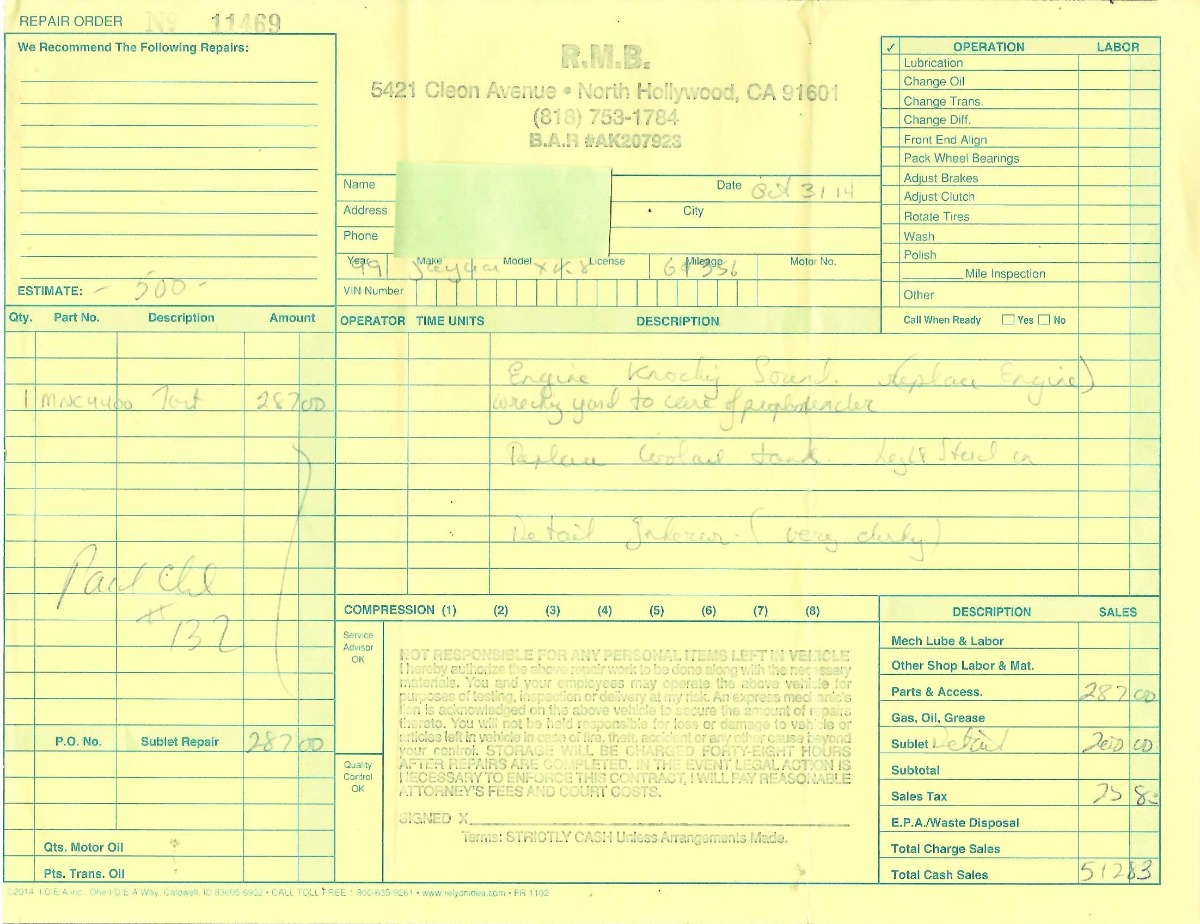 REPAIR ORDER No 11469
We Recommend The Following Repairs:
ESTIMATE: - 500 -
R.M.B.
5421 Cleon Avenue • North Hollywood, CA 91601
(818) 753-1784
B.A.R #AK207923
Name
Date Oct 31 14
Address
City
Phone
Year 99 Make Jaguar Model XK8 License Mileage Motor No.
VIN Number
✓ OPERATION LABOR
Lubrication
Change Oil
Change Trans.
Change Diff.
Front End Align
Pack Wheel Bearings
Adjust Brakes
Adjust Clutch
Rotate Tires
Wash
Polish
Mile Inspection
Other
Call When Ready Yes No
Qty. Part No. Description Amount
1 MNC4400 287 00
Paid Chk
# 132
P.O. No. Sublet Repair 287 00
Qts. Motor Oil
Pts. Trans. Oil
OPERATOR TIME UNITS DESCRIPTION
Engine Knocking Sound. (replace Engine)
wrecking yard to care of
Replace Coolant tank.
Detail Interior. (very dirty)
COMPRESSION (1) (2) (3) (4) (5) (6) (7) (8)
Service
Advisor
OK
Quality
Control
OK
NOT RESPONSIBLE FOR ANY PERSONAL ITEMS LEFT IN VEHICLE
I hereby authorize the above repair work to be done along with the necessary
materials. You and your employees may operate the above vehicle for
purposes of testing, inspection or delivery at my risk. An express mechanic's
lien is acknowledged on the above vehicle to secure the amount of repairs
thereto. You will not be held responsible for loss or damage to vehicle or
articles left in vehicle in case of fire, theft, accident or any other cause beyond
your control. STORAGE WILL BE CHARGED FORTY-EIGHT HOURS
AFTER REPAIRS ARE COMPLETED. IN THE EVENT LEGAL ACTION IS
NECESSARY TO ENFORCE THIS CONTRACT, I WILL PAY REASONABLE
ATTORNEY'S FEES AND COURT COSTS.
SIGNED X
Terms: STRICTLY CASH Unless Arrangements Made.
DESCRIPTION SALES
Mech Lube & Labor
Other Shop Labor & Mat.
Parts & Access. 287 00
Gas, Oil, Grease
Sublet Detail 200 00
Subtotal
Sales Tax 25 83
E.P.A./Waste Disposal
Total Charge Sales
Total Cash Sales 512 83
©2014 I.D.E.A inc. One I.D.E.A Way, Caldwell, ID 83605-6902 • CALL TOLL FREE 1-800-635-9261 • www.relyonidea.com • FR 1102